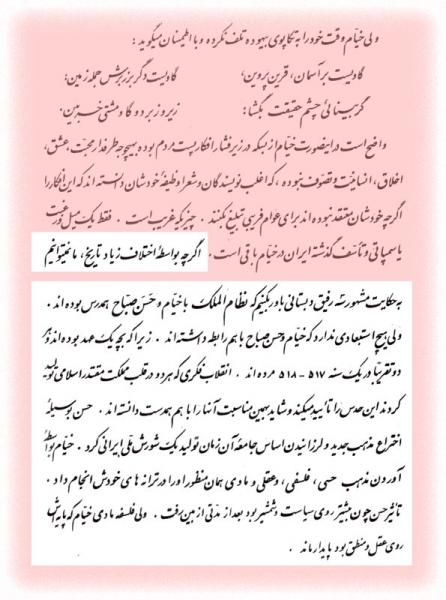 ولی خیّام وقت خود را به تکاپوی بیهوده تلف نکرده و با اطمینان میگوید :
گاویست بر آسمان، قرین پروین، گاویست دگر بزیرش جمله زمین:
گر بینائی چشم حقیقت بگشا: زیر و زبر دو گاو مشتی خر بین.
واضح است در اینصورت خیّام از بسکه در زیر فشار افکار پست مردم بوده بهیچوجه طرفدار محبّت، عشق،
اخلاق، انسانیت و تصوّف نبوده، که اغلب نویسندگان و شعرا وظیفهٔ خودشان دانسته اند که این افکار را
اگر چه خودشان معتقد نبوده اند برای عوام فریبی تبلیغ بکنند . چیزیکه غریب است . فقط یک میل و رغبت
یا سمپاتی و تأسف گذشتهٔ ایران در خیّام باقی است . اگر چه بواسطهٔ اختلاف زیاد تاریخ، ما نمیتوانیم
به حکایت مشهور سه رفیق دبستانی باور بکنیم که نظام الملک با خیّام و حسن صباح همدرس بوده اند .
ولی هیچ استبعادی ندارد که خیّام و حسن صباح با هم رابطه داشته اند . زیرا که بچه یک عهد بوده اند و هر
دو تقریباً در یک سنه ۵۱۷ - ۵۱۸ مرده اند . انقلاب فکری که هر دو در قلب مملکت مقتدر اسلامی تولید
کردند این حدس را تأیید میکند و شاید بهمین مناسبت آنها را با هم همدست دانسته اند . حسن بوسیلهٔ
اختراع مذهب جدید و لرزانیدن اساس جامعهٔ آن زمان تولید یک شورش ملی ایرانی کرد . خیّام بواسطهٔ
آوردن مذهب حسی، فلسفی، و عقلی و مادی همان منظور او را در ترانه های خودش انجام داد .
تأثیر حسن چون بیشتر روی سیاست و شمشیر بود بعد از مدتی از بین رفت . ولی فلسفه مادی خیّام که پایه اش
روی عقل و منطق بود پایدار ماند .